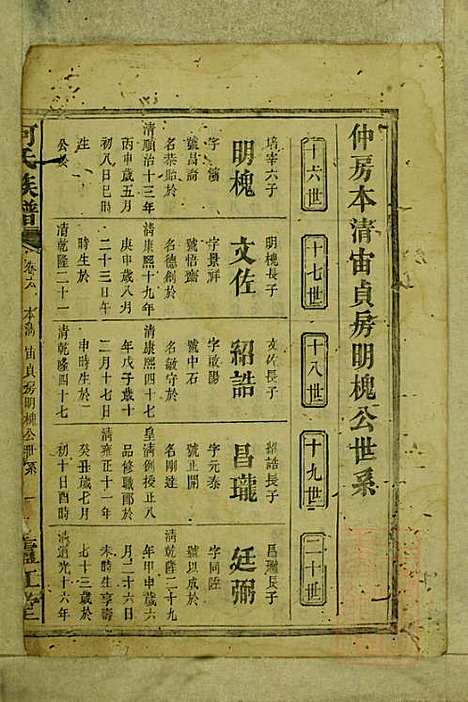 仲房本清宙貞房明槐公世系
十六世
十七世
十八世
十九世
二十世
明槐
六子
字
號昌齋
名恭貽於
清順治十三年
丙申歲五月
初八日巳時
生
公於
文佐
明槐長子
字景祥
號悟齋
名德創於
清康熙十九年
庚申歲八月
二十三日午
時生於
清乾隆二十一
紹誥
文佐長子
字啟陽
號中石
名敏守於
清康熙四十七
年戊子歲十
二月十七日
申時生於
清乾隆四十七
昌瓏
紹誥長子
字元泰
號止開
名剛達
皇清例授正八
品修職郎於
清雍正十一年
癸丑歲七月
初十日酉時
廷弼
昌瓏長子
字同
號以成於
清乾隆二十九
年甲申歲六
月二十六日
未時生享壽
七十三歲於
清道光十六年
何氏族譜
本清宙貞房明槐公世系
廬江堂